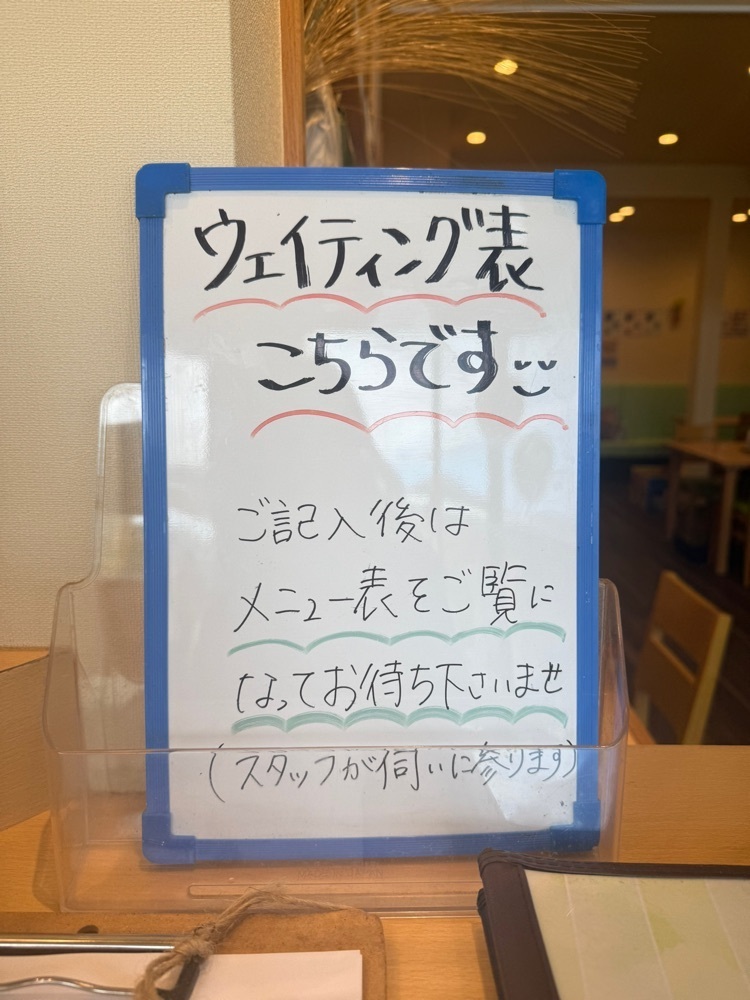 ウェイティング表
こちらです
ご記入後は
メニュー表をご覧に
なってお待ち下さいませ
(スタッフが伺いに参ります)